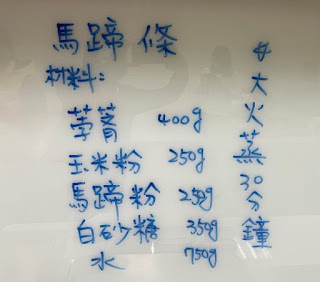 馬蹄條
材料：
荸薺 400g
玉米粉 250g
馬蹄粉 250g
白砂糖 350g
水 750g
大火蒸30分鐘